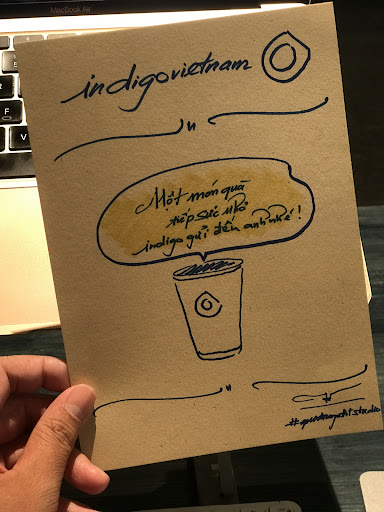 MacBook Air
indigovietnam
Một món quà
tiếp sức nhỏ
indigo gửi đến anh nhé!